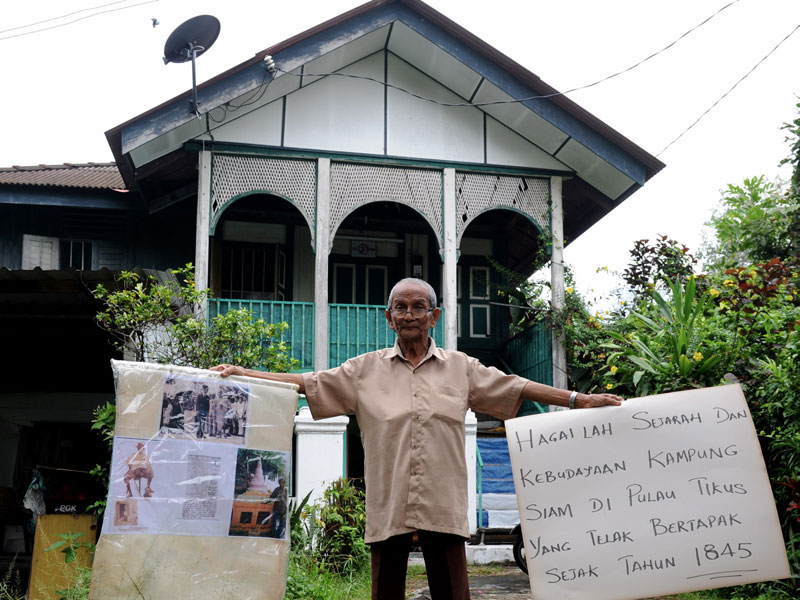 HAGAILAH SEJARAH DAN
KEBUDAYAAN KAMPUNG
SIAM DI PULAU TIKUS
YANG TELAK BERTAPAK
SEJAK TAHUN 1845